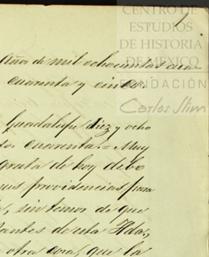 CENTRO DE
ESTUDIOS
DE HISTORIA
DE MEXICO
FUNDACIÓN
Carlos Slim
Año de mil ochocientos cua
cuarenta y cinco.
Guadalupe Diez y ocho
cuarenta. = Muy
grata de hoy debo
sus providencias para
, sin temor de que
otra cosa, que la